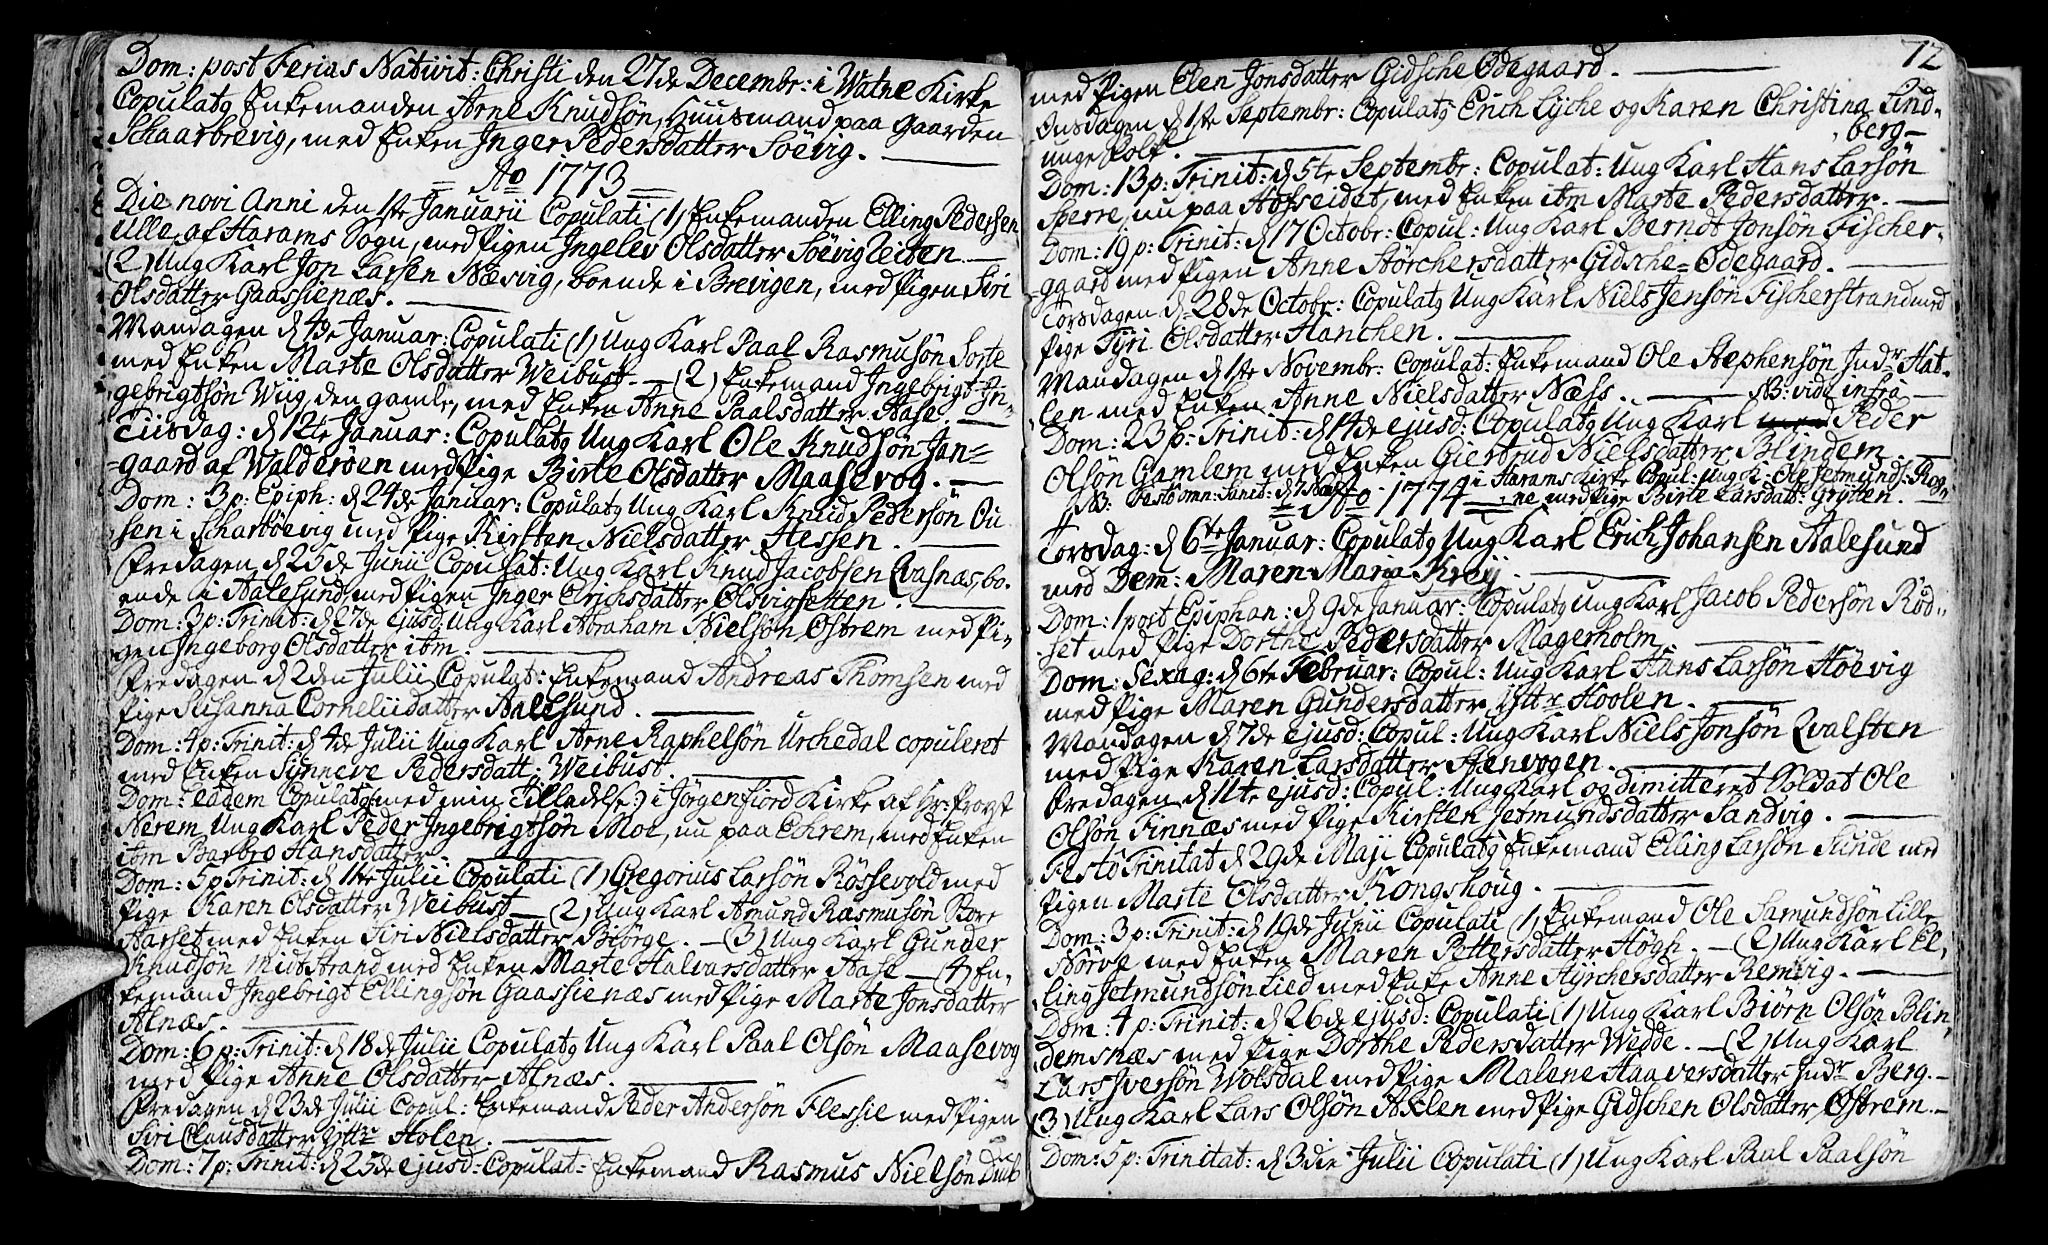 Dom: post Ferias Nativit: Christi den 27de Decembr: i Watne Kirke
Copulatq Enkemanden Arne Knudsön, Huusmand paa Gaarden
Schaarbrevig, med Enken Inger Pedersdatter Söevig.
Ao 1773
Die novi Anni den 1ste Januarii Copulati (1) Enkemanden Elling Pedersen
Ulle af Harams Sogn, med Pigen Ingelev Olsdatter Söevigzeiten.
(2) Ung Karl Jon Larsen Næsvig, boende i Brevigen, med Pigen Siri
Olsdatter Gaassienæs.
Mandagen d 4de Januar: Copulati (1) Ung Karl Paal Rasmusön Sorte
med Enken Marte Olsdatter Weibust. — (2) Enkemand Ingebrigt In-
gebrigtsön Wiig, den gamle, med Enken Anne Paalsdatter Aase.
Tiisdag: d 12te Januar: Copulatq Ung Karl Ole Knudsön Jan=
=gaard af Walderöen med Pige Birte Olsdatter Maasevog.
Dom: 3 p: Epiph: d 24de Januar: Copulatq Ung Karl Knud Pedersön Ou
sen i Scharböevig med Pige Kirsten Nielsdatter Hessen.
Fredagen d 25de Junii Copulat: Ung Karl Knud Jacobsen Qvasnæs, bo-
ende i Aalesund, med Pigen Inger Erichsdatter Olsvigsetten.
Dom: 3 p: Trinit: d 27de ejusd: Ung Karl Abraham Nielsön Ostrem med Pi-
gen Ingeborg Olsdatter ibm.
Fredagen d 2den Julii Copulat: Enkemand Andreas Thomsen med
Pige Susanna Corneliidatter Aalesund.
Dom: 4 p: Trinit: d 4de Julii Ung Karl Arne Raphelsön Urchedal copuleret
med Enken Synneve Pedersdatt: Weibust.
Dom: eadem Copulatq (med min Tilladelse:) i Jörgenfiord Kirke af Hr: Provst
Nerem Ung Karl Peder Ingebrigtsön Moe, nu paa Echrem, med Enken
ibm Barbro Hansdatter.
Dom: 5 p Trinit: d 11te Julii Copulati (1) Gregorius Larsön Rössevold med
Pige Karen Olsdatter Weibust — (2) Ung Karl Amund Rasmusön Store
Aarset med Enken Siri Nielsdatter Biörge. — (3) Ung Karl Gunder
Knudsön Midstrand med Enken Marte Halvarsdatter Aase — (4) En-
kemand Ingebrigt Ellingsön Gaassienæs med Pige Marte Jonsdatter
Alnæs.
Dom: 6 p: Trinit: d 18de Julii Copulatq Ung Karl Paal Olsön Maasevog
med Pige Anne Olsdatter Alnæs.
Fredagen d 23de Julii Copul: Enkemand Peder Andersön Flessie med Pigen
Siri Clausdatter Ytr: Holen.
Dom: 7 p: Trinit: d 25de ejusd: Copulat: Enkemand Rasmus Nielsön Diub
72
med Pigen Elen Jonsdatter Gidsche Ödegaard.
Onsdagen d 1ste Septembr: Copulatq Erich Lyche og Karen Christina Lind-
berg —
unge Folk.
Dom: 13 p: Trinit: d 5te Septembr: Copulat: Ung Karl Hans Larsön
Sperre, nu paa Hofseidet, med Enken ibm Marte Pedersdatter.
Dom: 19 p: Trinit: d 17 Octobr: Copul: Ung Karl Berndt Jonsön Fischer-
gaard med Pigen Anne Störchersdatter Gidsche-Ödegaard.
Torsdagen d 28de Octobr: Copulatq Ung Karl Niels Jensön Fischerstrand med
Pige Tyri Olsdatter Hanchen.
Mandagen d 1ste Novembr: Copulat: Enkemand Ole Stephensön Indr Hat-
len med Enken Anne Nielsdatter Næss. — NB: vide infra —
Dom: 23 p: Trinit: d 14de ejusd: Copulatq Ung Karl Peder
Olsön Gamlem med Enken Giertrud Nielsdatter Blindem.
NB: Festo omn: Sanct: d 7 Nov: i Harams Kirke Copul: Ung K: Ole Jetmunds: Rog-
Ao 1774 ne med Pige Birte Larsdatt: Grytten.
Torsdag: d 6te Januar: Copulatq Ung Karl Erich Johansen Aalesund
med Dem: Maren Maria Kreÿ.
Dom: 1 post Epiphan: d 9de Januar: Copulatq Ung Karl Jacob Pedersön Röd-
set med Pige Dorthe Pedersdatter Magerholm
Dom: Sexag: d 6te Februar: Copul: Ung Karl Hans Larsön Höevig
med Pige Maren Gundersdatter Yttr Hoolen.
Mandagen d 7de ejusd: Copul: Ung Karl Niels Jonsön Qvalsten
med Pige Karen Larsdatter Stenvogen.
Fredagen d 11te ejusd: Copul: Ung Karl og dimitteret Soldat Ole
Olsön Finnæs med Pige Kirsten Jetmundsdatter Sandvig.
Festo Trinitat d 29de Maji Copulatq Enkemand Elling Larsön Sunde med
Pigen Marte Olsdatter Kongshoug.
Dom: 3 p: Trinit: d 19de Junii Copulati (1) Enkemand Ole Samundsön Lille
Nörve med Enken Maren Pettersdatter Högh. — (2) Ung Karl El-
ling Jetmundsön Lied med Enke Anne Hyrchersdatter Remvig.
Dom: 4 p: Trinit: d 26de ejusd: Copulati (1) Ung Karl Biörn Olsön Blin-
demsnæs med Pige Dorthe Pedersdatter Wedde. — (2) Ung Karl
Lars Iversön Wolsdal med Pige Malene Haaversdatter Indr Berg. —
(3) Ung Karl Lars Olsön Axlen med Pige Gidschen Olsdatter Ostrem. —
Dom: 5 p: Trinitat: d 3die Julii Copulati (1) Ung Karl Paul Paalsön